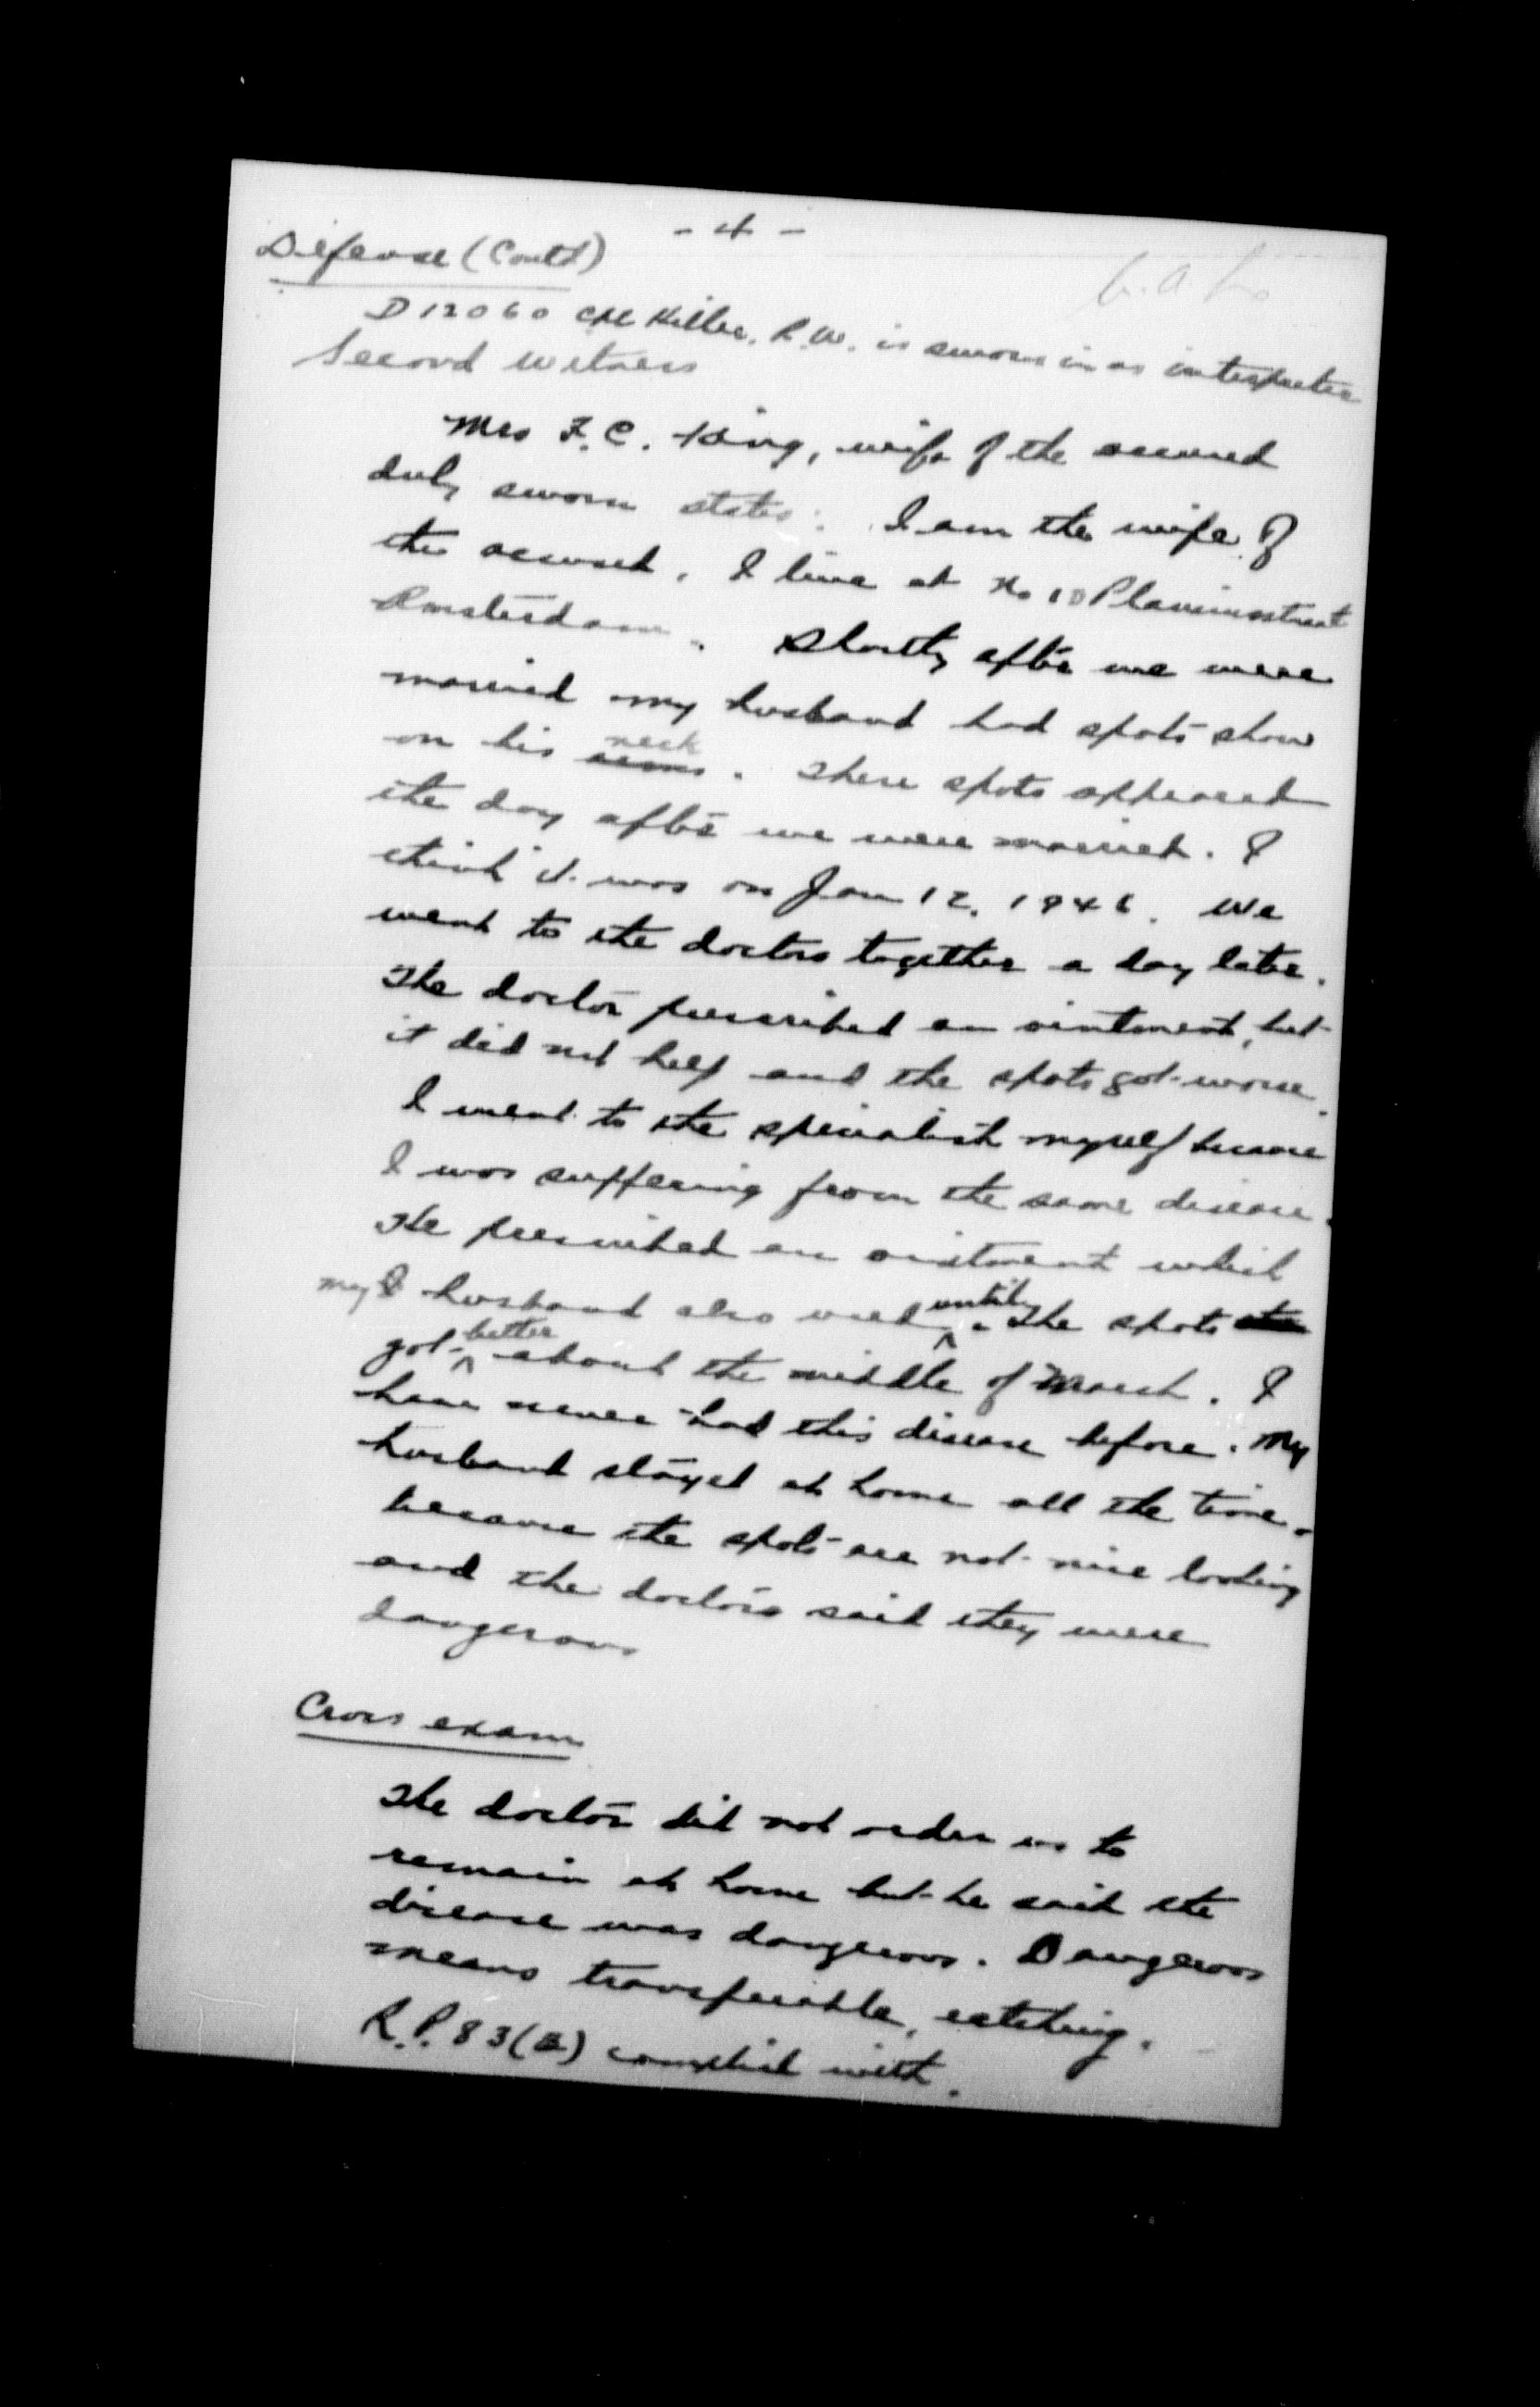 - 4 -
Defense (Contd)
D12060 Cpl Hiller, R.W. is sworn in as interpreter
Second Witness
Mrs F.C. King, wife of the accused
duly sworn states: I am the wife of
the accused. I live at No 10
Amsterdam. Shortly after we were
married my husband had spots show
on his neck. These spots appeared
the day after we were married. I
think it was on Jan 12, 1946. We
went to the doctors together a day later.
The doctor prescribed an ointment, but
it did not help and the spots got worse.
I went to the specialist myself because
I was suffering from the same disease.
He prescribed an ointment which
my husband also used until the spots
got better about the middle of March. I
have never had this disease before. My
husband stayed at home all the time
because the spots are not nice looking
and the doctors said they were
dangerous
Cross exam
The doctor did not order us to
remain at home but he said the
disease was dangerous. Dangerous
means transferable, catching.
R.P. 83(B) complied with.